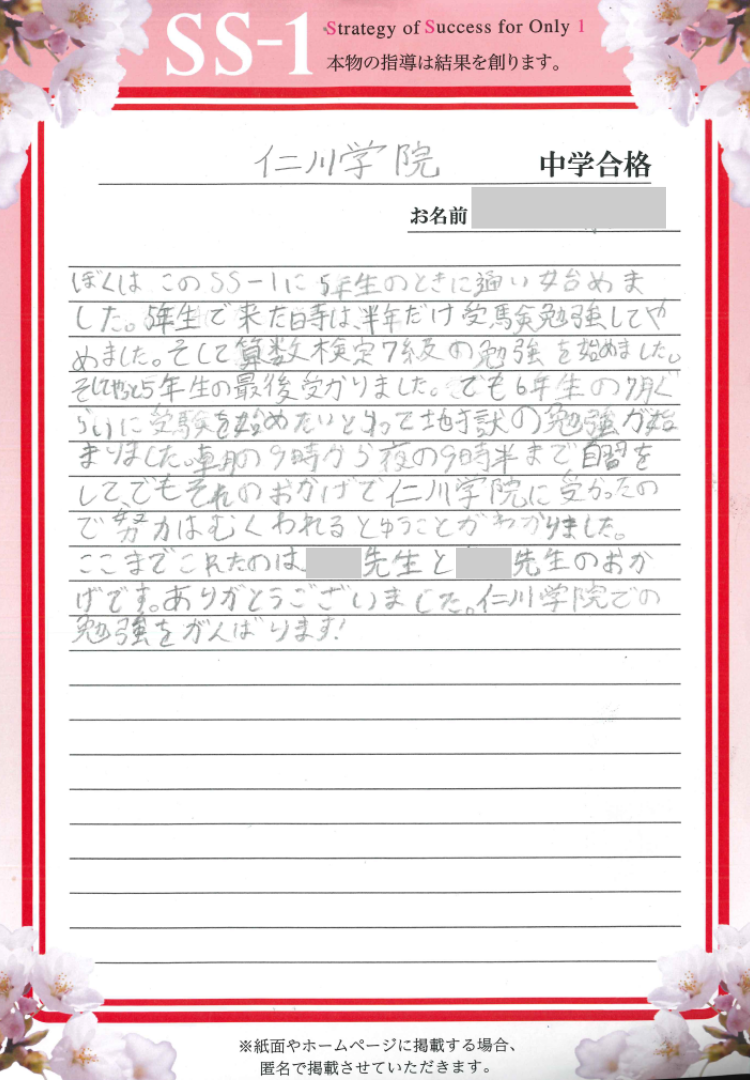 SS-1
Strategy of Success for Only 1
本物の指導は結果を創ります。
仁川学院 中学合格
お名前
ぼくは このSS-1に 5年生のときに通い始めま
した。5年生で来た時は、半年だけ受験勉強してや
めました。そして算数検定7級の勉強を始めました。
そしてやっと5年生の最後受かりました。でも6年生の7月ぐ
らいに受験を始めたいと思って地獄の勉強が始
まりました。朝の9時から夜の9時半まで自習を
して、でもそれのおかげで仁川学院に受かったの
で努力はむくわれるとゆうことがわかりました。
ここまでこれたのは 先生と 先生のおか
げです。ありがとうございました。仁川学院での
勉強をがんばります!
※紙面やホームページに掲載する場合、
匿名で掲載させていただきます。